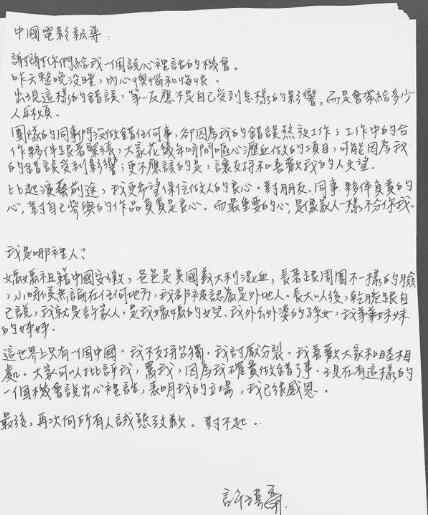 中國電影報導:
謝謝你們給我一個說心裡話的機會。
昨天整晚沒睡,內心懊惱和悔恨。
出現這樣的錯誤,第一反應不是自己受到怎樣的影響,而是會帶給多少
人麻煩。
團隊的同事們沒做錯任何事,卻因為我的錯誤熬夜工作;工作中的合
作夥伴跟著緊張,大家花幾年時間嘔心瀝血做的項目,可能因為我
的錯誤受到影響;更不應該的是,讓支持和喜歡我的人失望。
比起演藝前途,我更希望保住做人的良心。對朋友、同事、夥伴負責的
心,對自己參與的作品負責是良心。而最重要的心,是像家人一樣不分你我。
我是哪裡人?
媽媽祖籍中國安徽,爸爸是美國義大利混血,長著跟周圍不一樣的臉
,小時候無論在任何地方,我都被認為是外地人。長大以後,乾脆跟自
己說,我就是許家人。是我媽媽的女兒,我外公外婆的孫女,我弟弟妹妹
的姊姊。
這世界上只有一個中國,我不支持台獨,我討厭分裂。我喜歡大家和睦相
處。大家可以批評我,罵我,因為我確實做錯了事。現在有這樣的
一個機會說出心裡話,表明我的立場,我已很感恩。
最後,再次向所有人誠懇致歉。對不起。
許瑋甯